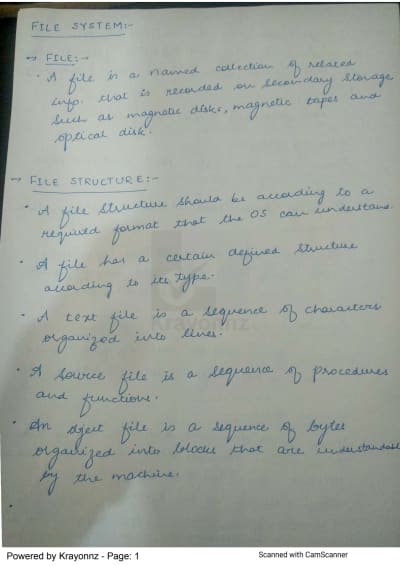 FILE SYSTEM:-
→ FILE:-
• A file is a named collection of related
info. that is recorded on secondary storage
such as magnetic disks, magnetic tapes and
optical disk.
→ FILE STRUCTURE:-
• A file structure should be according to a
required format that the OS can understand
• A file has a certain defined structure
according to its type.
• A text file is a sequence of characters
organized into lines.
Krayonnz
• A source file is a sequence of procedures
and functions.
• An object file is a sequence of bytes
organized into blocks that are understandable
by the machine.
Powered by Krayonnz - Page: 1
Scanned with CamScanner